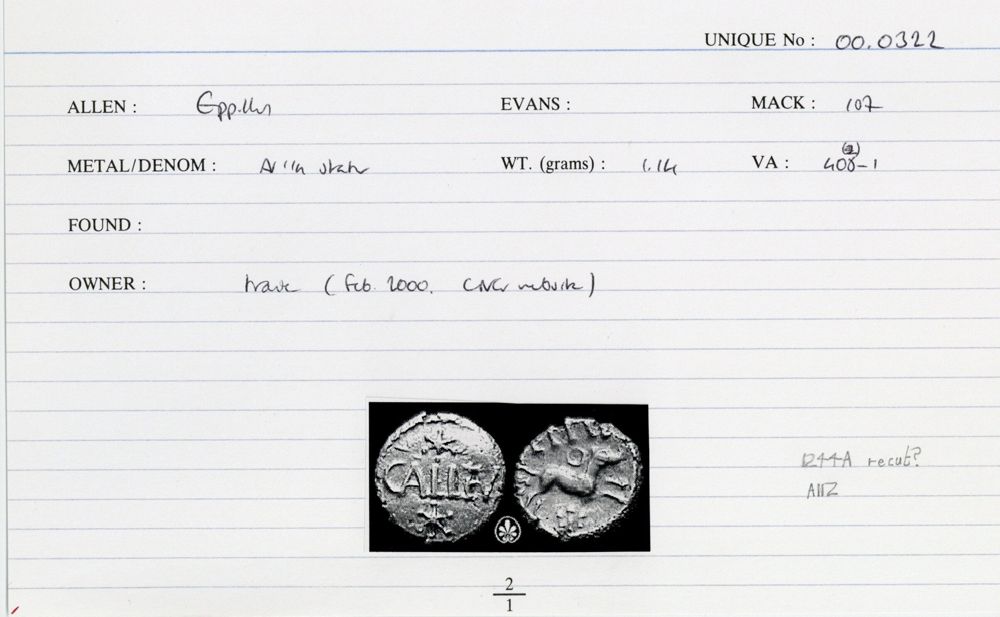 UNIQUE No : 00.0322
ALLEN : Eppillus EVANS : MACK : 107
METAL/DENOM : AV 1/4 stater WT. (grams) : 1.14 VA : 408-1
FOUND :
OWNER : trade (Feb. 2000. CNG website)
CALLE
1244A recut?
A112
2
1